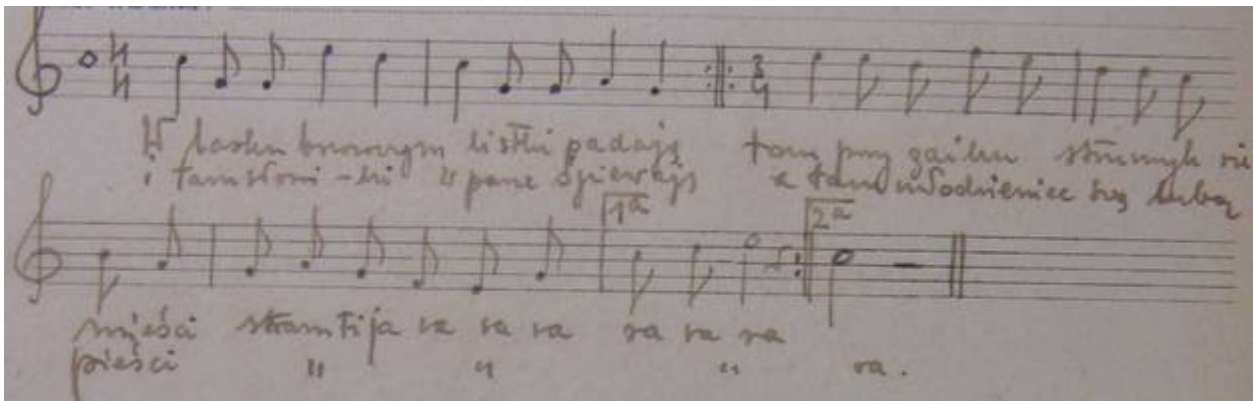 W lasku brzozowym listki padają tam przy gaiku strumyk się
i tam słowi-ki w parze śpiewają a tam młodzieniec swą lubą
1a 2a
mieści stramtija ra ra ra ra ra ra
pieści " " " ra.